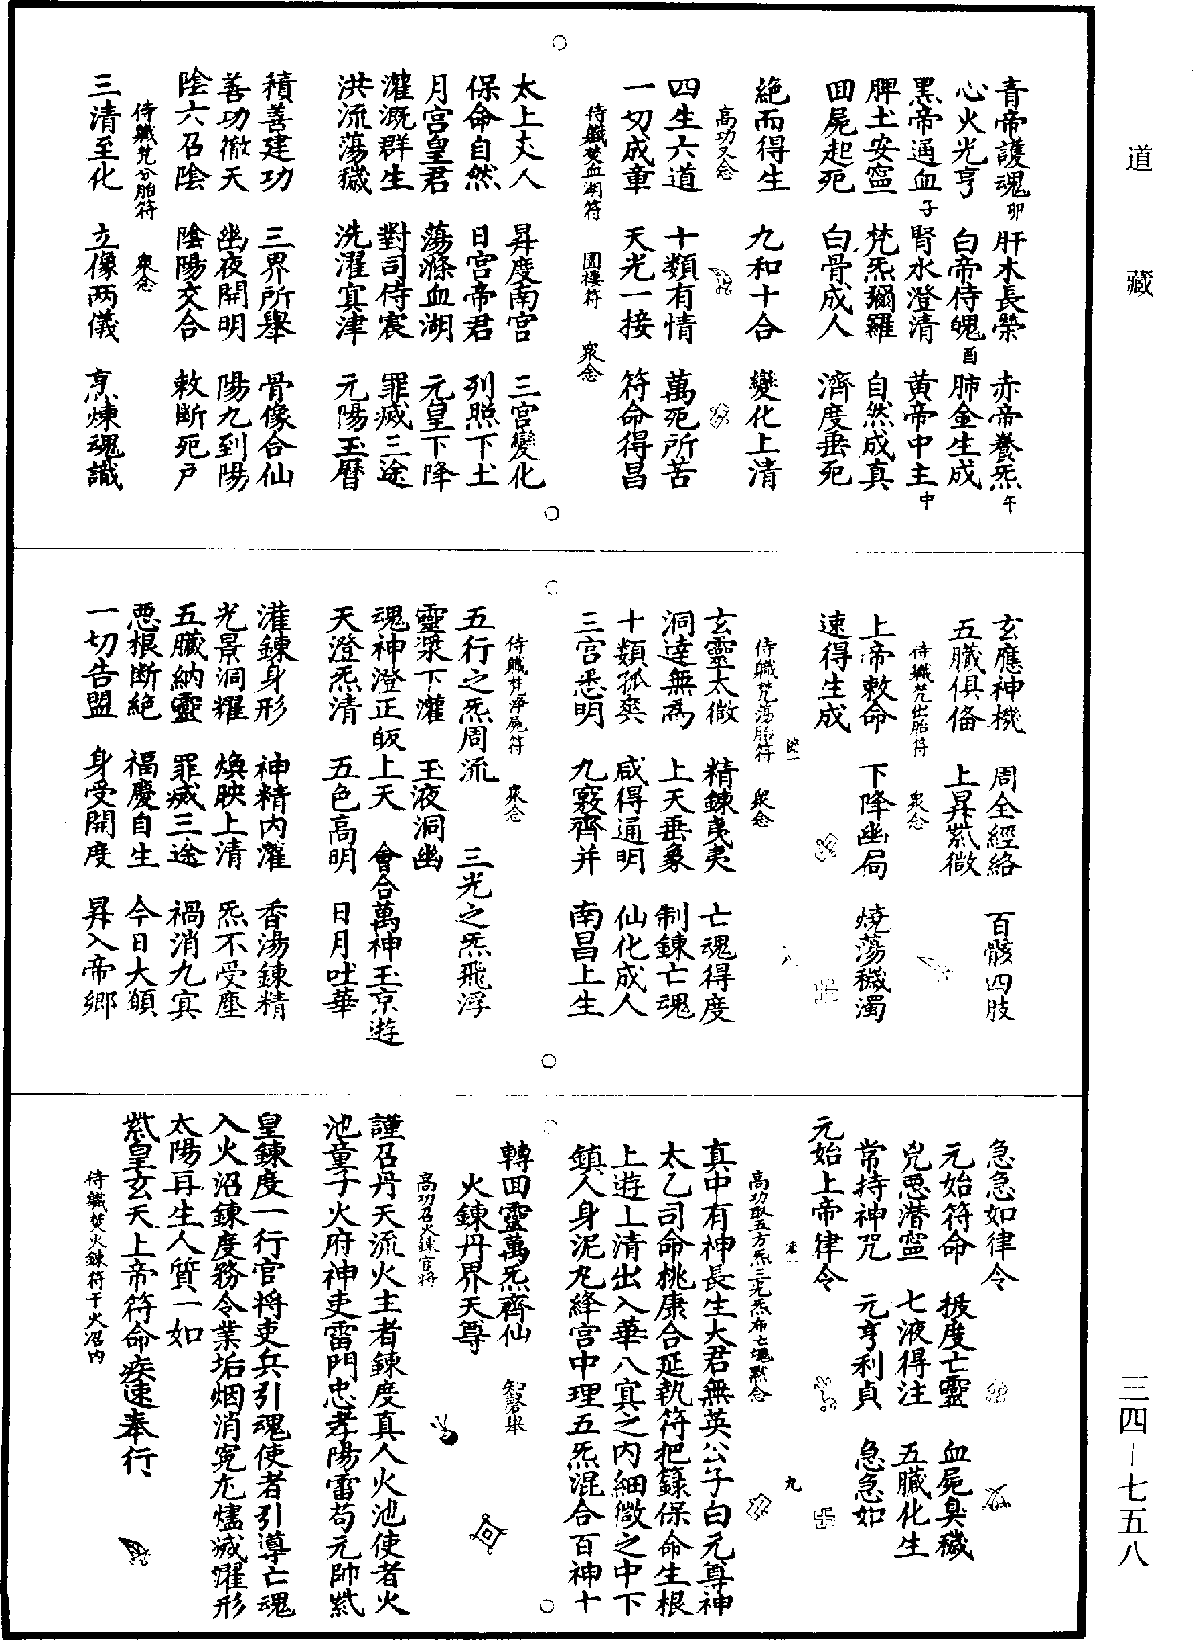 道藏
三四—七五八
青帝護魂卯　肝木長榮　赤帝養炁午
心火光亨　白帝侍魄酉　肺金生成
黑帝通血子　腎水澄清　黃帝中主中
脾土安寍　梵炁彌羅　自然成真
囬屍起死　白骨成人　濟度垂死
絶而得生　九和十合　變化上清
高功又念
四生六道　十類有情　萬死所苦
一切成章　天光一接　符命得昌
侍軄焚血湖符　圓樓符　衆念
太上丈人　昇度南宫　三宫變化
保命自然　日宫帝君　列照下土
月宫皇君　蕩滌血湖　元皇下降
灌溉群生　對司侍宸　罪滅三途
洪流蕩穢　洗濯㝠津　元陽玉曆
積善建功　三界所舉　骨像合仙
善功徹天　幽夜開明　陽九到陽
陰六召陰　陰陽交合　敕斷死户
侍軄焚分胎符　衆念
三清至化　立像两儀　烹煉魂識
玄應神機　周全經絡　百骸四肢
五臓俱俻　上昇紫微
侍軄焚出胎符　衆念
上帝敕命　下降幽局　燒蕩穢濁
速得生成
侍軄焚蕩胎符　衆念
玄靈太微　精錬夷夷　亡魂得度
洞達無為　上天垂象　制錬亡魂
十類孤爽　咸得通明　仙化成人
三宫悉明　九竅齊并　南昌上生
侍軄焚淨屍符　衆念
五行之炁周流　三光之炁飛浮
靈漿下灌　玉液洞幽
魂神澄正皈上天　會合萬神玉京遊
天澄炁清　五色高明　日月吐華
灌錬身形　神精内濯　香湯錬精
光景洞耀　煥映上清　炁不受塵
五臓納靈　罪滅三途　禍消九㝠
惡根断絶　福慶自生　今日大願
一切告盟　身受開度　昇入帝郷
急急如律令
元始符命　拔度亡靈　血屍臭穢
兇惡潜寍　七液得注　五臓化生
常持神咒　元亨利貞　急急如
元始上帝律令
高功取五方炁三光炁布亡魂黙念
真中有神長生大君無英公子白元尊神
太乙司命桃康合延執符把籙保命生根
上遊上清出入華八㝠之内細微之中下
鎮人身泥丸絳宫中理五炁混合百神十
轉囬靈萬炁齊仙
火錬丹界天尊
高功召火錬官将
謹召丹天流火主者錬度真人火池使者火
池童子火府神吏雷門忠孝陽雷苟元帥紫
皇錬度一行官将吏兵引魂使者引導亡魂
入火沼錬度務令業垢烟消寃尤燼滅濯形
太陽再生人質一如
紫皇玄天上帝符命疾速奉行
侍軄焚火錬符于火沼内